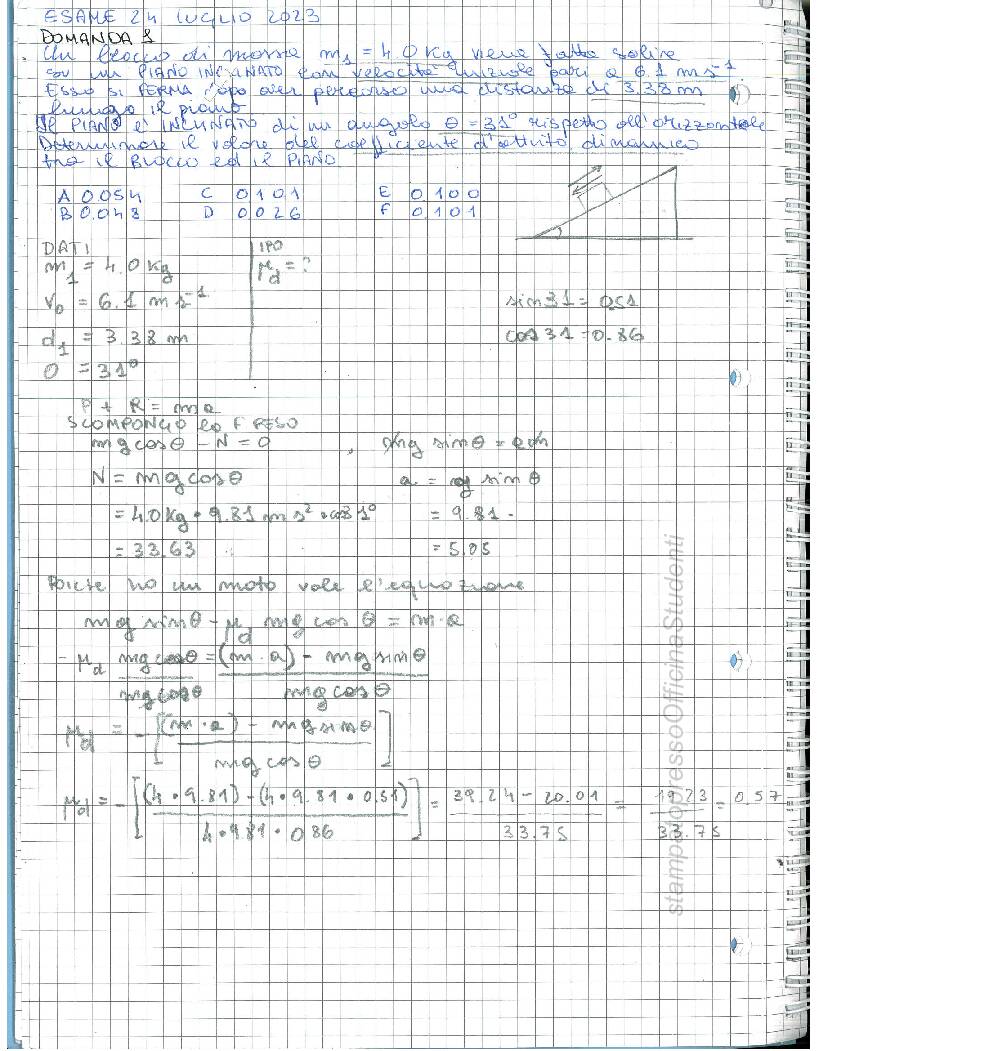 ESAME 24 LUGLIO 2023
DOMANDA 1
Un blocco di massa m1 = 4.0 Kg viene fatto salire
su un PIANO INCLINATO con velocità iniziale pari a 6.1 m s⁻¹.
Esso si FERMA dopo aver percorso una distanza di 3.38 m
lungo il piano
Il PIANO è INCLINATO di un angolo θ = 31° rispetto all'orizzontale
Determinare il valore del coefficiente d'attrito dinamico
tra il BLOCCO ed il PIANO
A 0.054 C 0.101 E 0.100
B 0.048 D 0.026 F 0.101
DATI IPO
m1 = 4.0 Kg μd = ?
v0 = 6.1 m s⁻¹ sin31 = 0.51
d1 = 3.38 m cos 31 = 0.86
θ = 31°
P + R = ma
SCOMPONGO la F PESO
mg cosθ - N = 0 , mg sinθ = am
N = mg cosθ a = g sinθ
= 4.0 Kg • 9.81 m s² • cos31° = 9.81 •
= 33.63 = 5.05
Poichè ho un moto vale l'equazione
mg sinθ - μd mg cos θ = m • a
- μd mg cosθ / mg cosθ = (m • a) - mg sinθ / mg cosθ
μd = - [(m • a) - mg sinθ / mg cosθ]
μd = - [(4 • 9.81) - (4 • 9.81 • 0.51) / 4 • 9.81 • 0.86] = 39.24 - 20.01 / 33.75 = 19.23 / 33.75 = 0.57
stampatopressoOfficinaStudenti